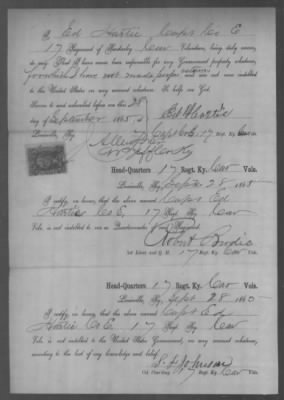 I, Ed Hartie Capt Co E
17 Regiment of Kentucky Cav Volunteers, being duly sworn,
to say, That I have never been responsible for any Government property whatever,
for which I have not made proper returns and am not now indebted
to the United States on any account whatever. So help me God.
Sworn to and subscribed before me this 28
September 1865 Ed Hartie
Louisville, Ky. Capt Co E, 17 Regt. Ky Cav
Head-Quarters 17 Regt. Ky. Cav Vols.
Louisville, Ky., Sept 28 1865
I certify, on honor, that the above named Capt Ed
Hartie Co E, 17 Regt. Ky Cav
Vols. is not indebted to me as Quartermaster of said Regiment.
Robert Brodie
1st Lieut and Q. M. 17 Regt. Ky Cav Vols.
Head-Quarters 17 Regt. Ky. Cav Vols.
Louisville, Ky., Sept 28 1865
I certify, on honor, that the above named Capt Ed
Hartie Co E, 17 Regt. Ky Cav
Vols. is not indebted to the United States Government, on any account whatever,
according to the best of my knowledge and belief.
S. F. Johnson
Col. Com'ding 17 Regt. Ky Cav Vols.